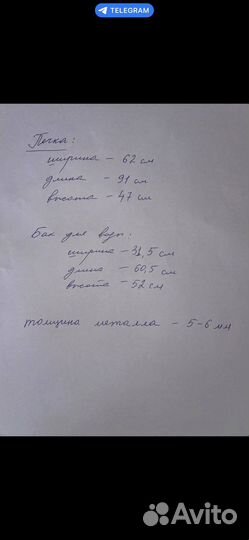 TELEGRAM
Печка:
ширина - 62 см
длина - 91 см
высота - 47 см
Бак для воды:
ширина - 31,5 см
длина - 60,5 см
высота - 52 см
толщина металла - 5-6 мм
Avito